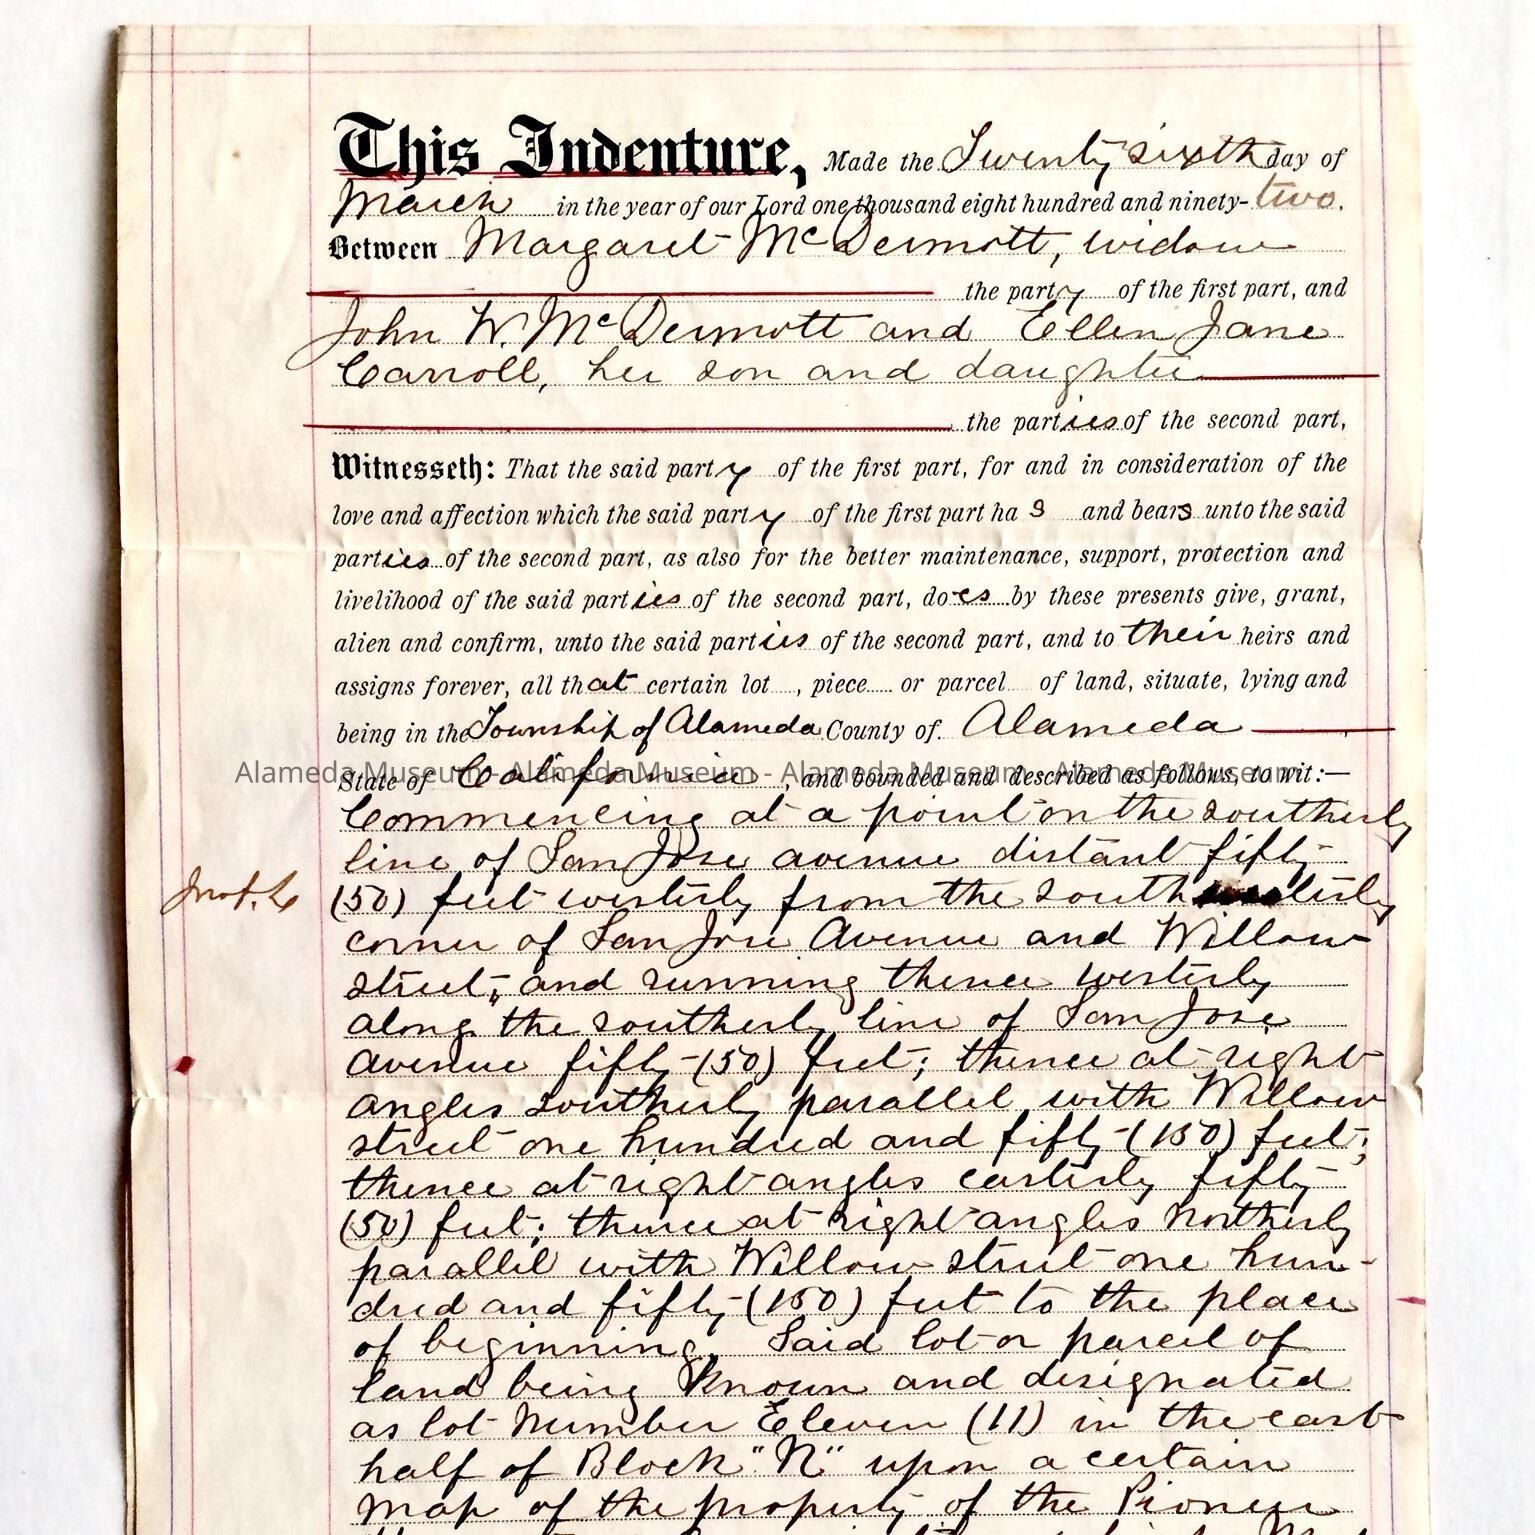 This Indenture, Made the Twenty sixth day of
March in the year of our Lord one thousand eight hundred and ninety-two.
Between Margaret McDermott, widow
the party of the first part, and
John W. McDermott and Ellen Jane
Carroll, her son and daughter
the parties of the second part,
Witnesseth: That the said party of the first part, for and in consideration of the
love and affection which the said party of the first part has and bears unto the said
parties of the second part, as also for the better maintenance, support, protection and
livelihood of the said parties of the second part, does by these presents give, grant,
alien and confirm, unto the said parties of the second part, and to their heirs and
assigns forever, all that certain lot , piece or parcel of land, situate, lying and
being in the Township of Alameda County of Alameda
State of California , and bounded and described as follows, to wit:—
Alameda Museum - Alameda Museum - Alameda Museum - Alameda Museum
Commencing at a point on the southerly
line of San Jose avenue distant fifty
(50) feet westerly from the southwesterly
corner of San Jose Avenue and Willow
street, and running thence westerly
along the southerly line of San Jose
avenue fifty (50) feet; thence at right
angles southerly parallel with Willow
street one hundred and fifty (150) feet;
thence at right angles easterly fifty
(50) feet; thence at right angles northerly
parallel with Willow street one hun-
dred and fifty (150) feet to the place
of beginning. Said lot or parcel of
land being known and designated
as lot number Eleven (11) in the east
half of Block "N" upon a certain
map of the property of the Pioneer